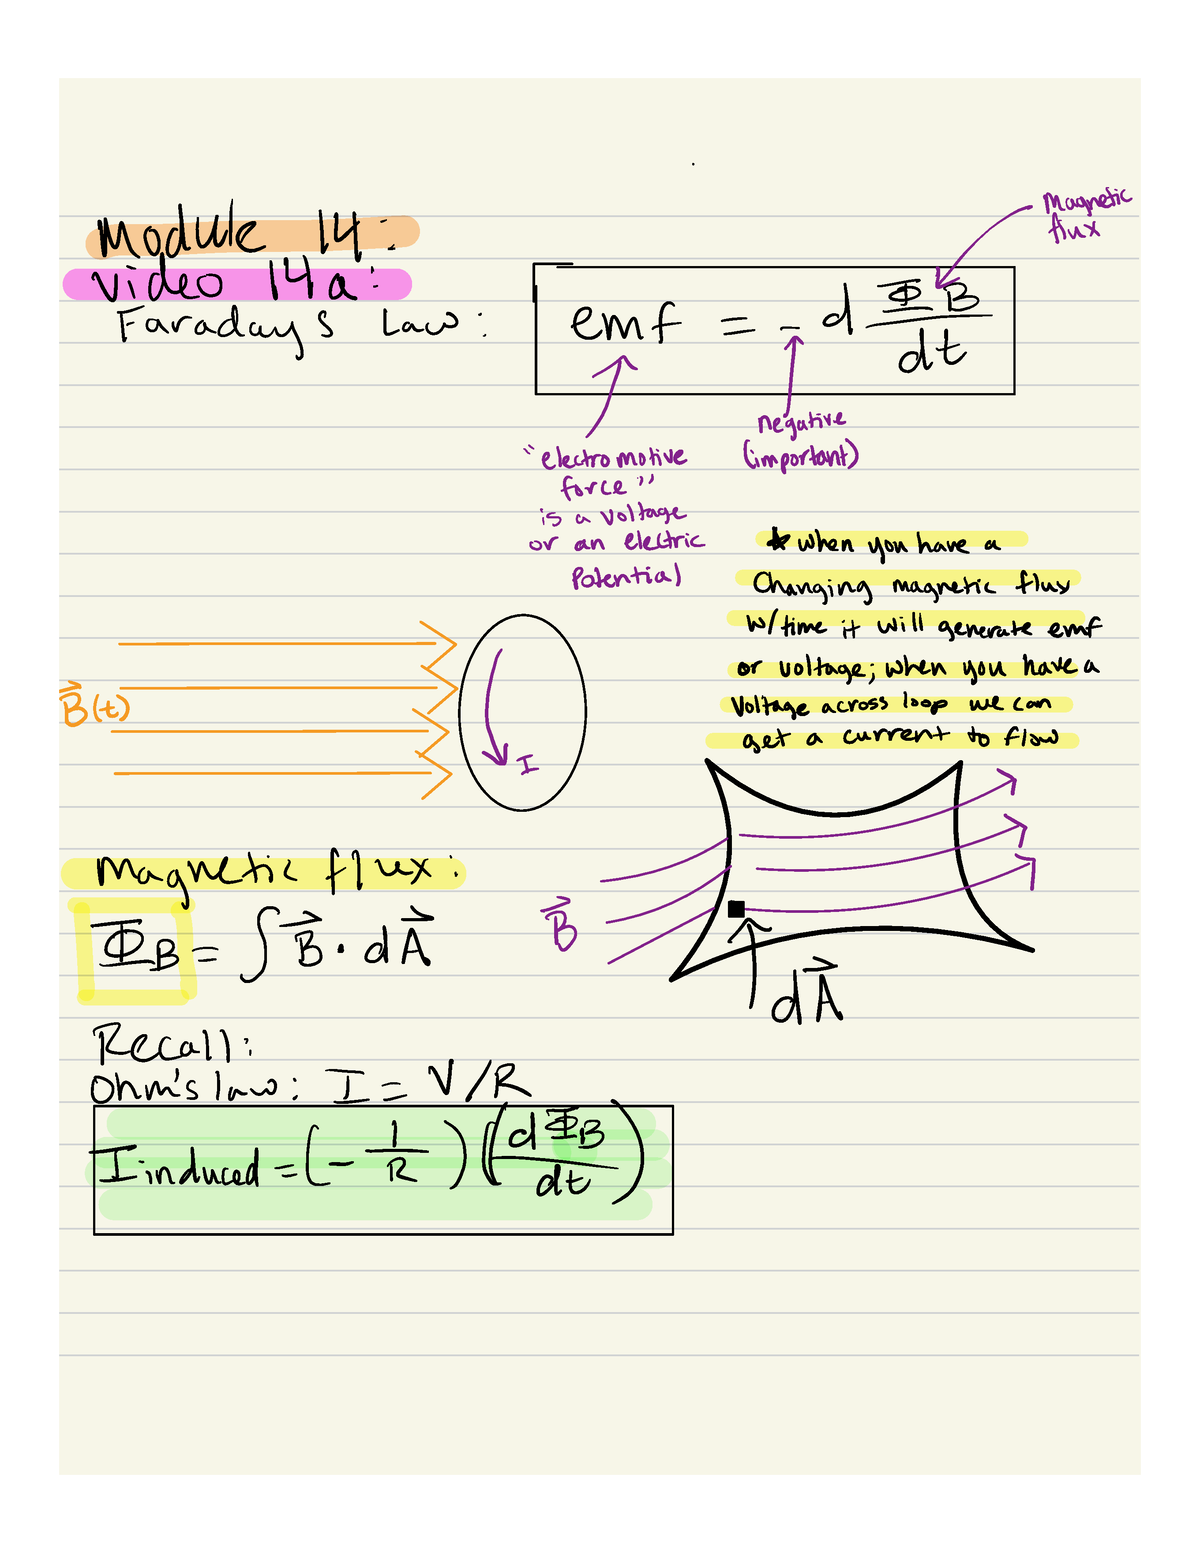 Module 14:
Video 14a:
Faraday's Law:
Magnetic
flux
emf = - dΦB/dt
negative
(important)
"electromotive
force"
is a voltage
or an electric
Potential
* when you have a
Changing magnetic flux
w/time it will generate emf
or voltage; when you have a
Voltage across loop we can
get a current to flow
B⃗(t)
I
Magnetic flux:
ΦB = ∫ B⃗ · dA⃗
B⃗
dA⃗
Recall:
Ohm's law: I = V/R
I induced = (- 1/R) (dΦB/dt)